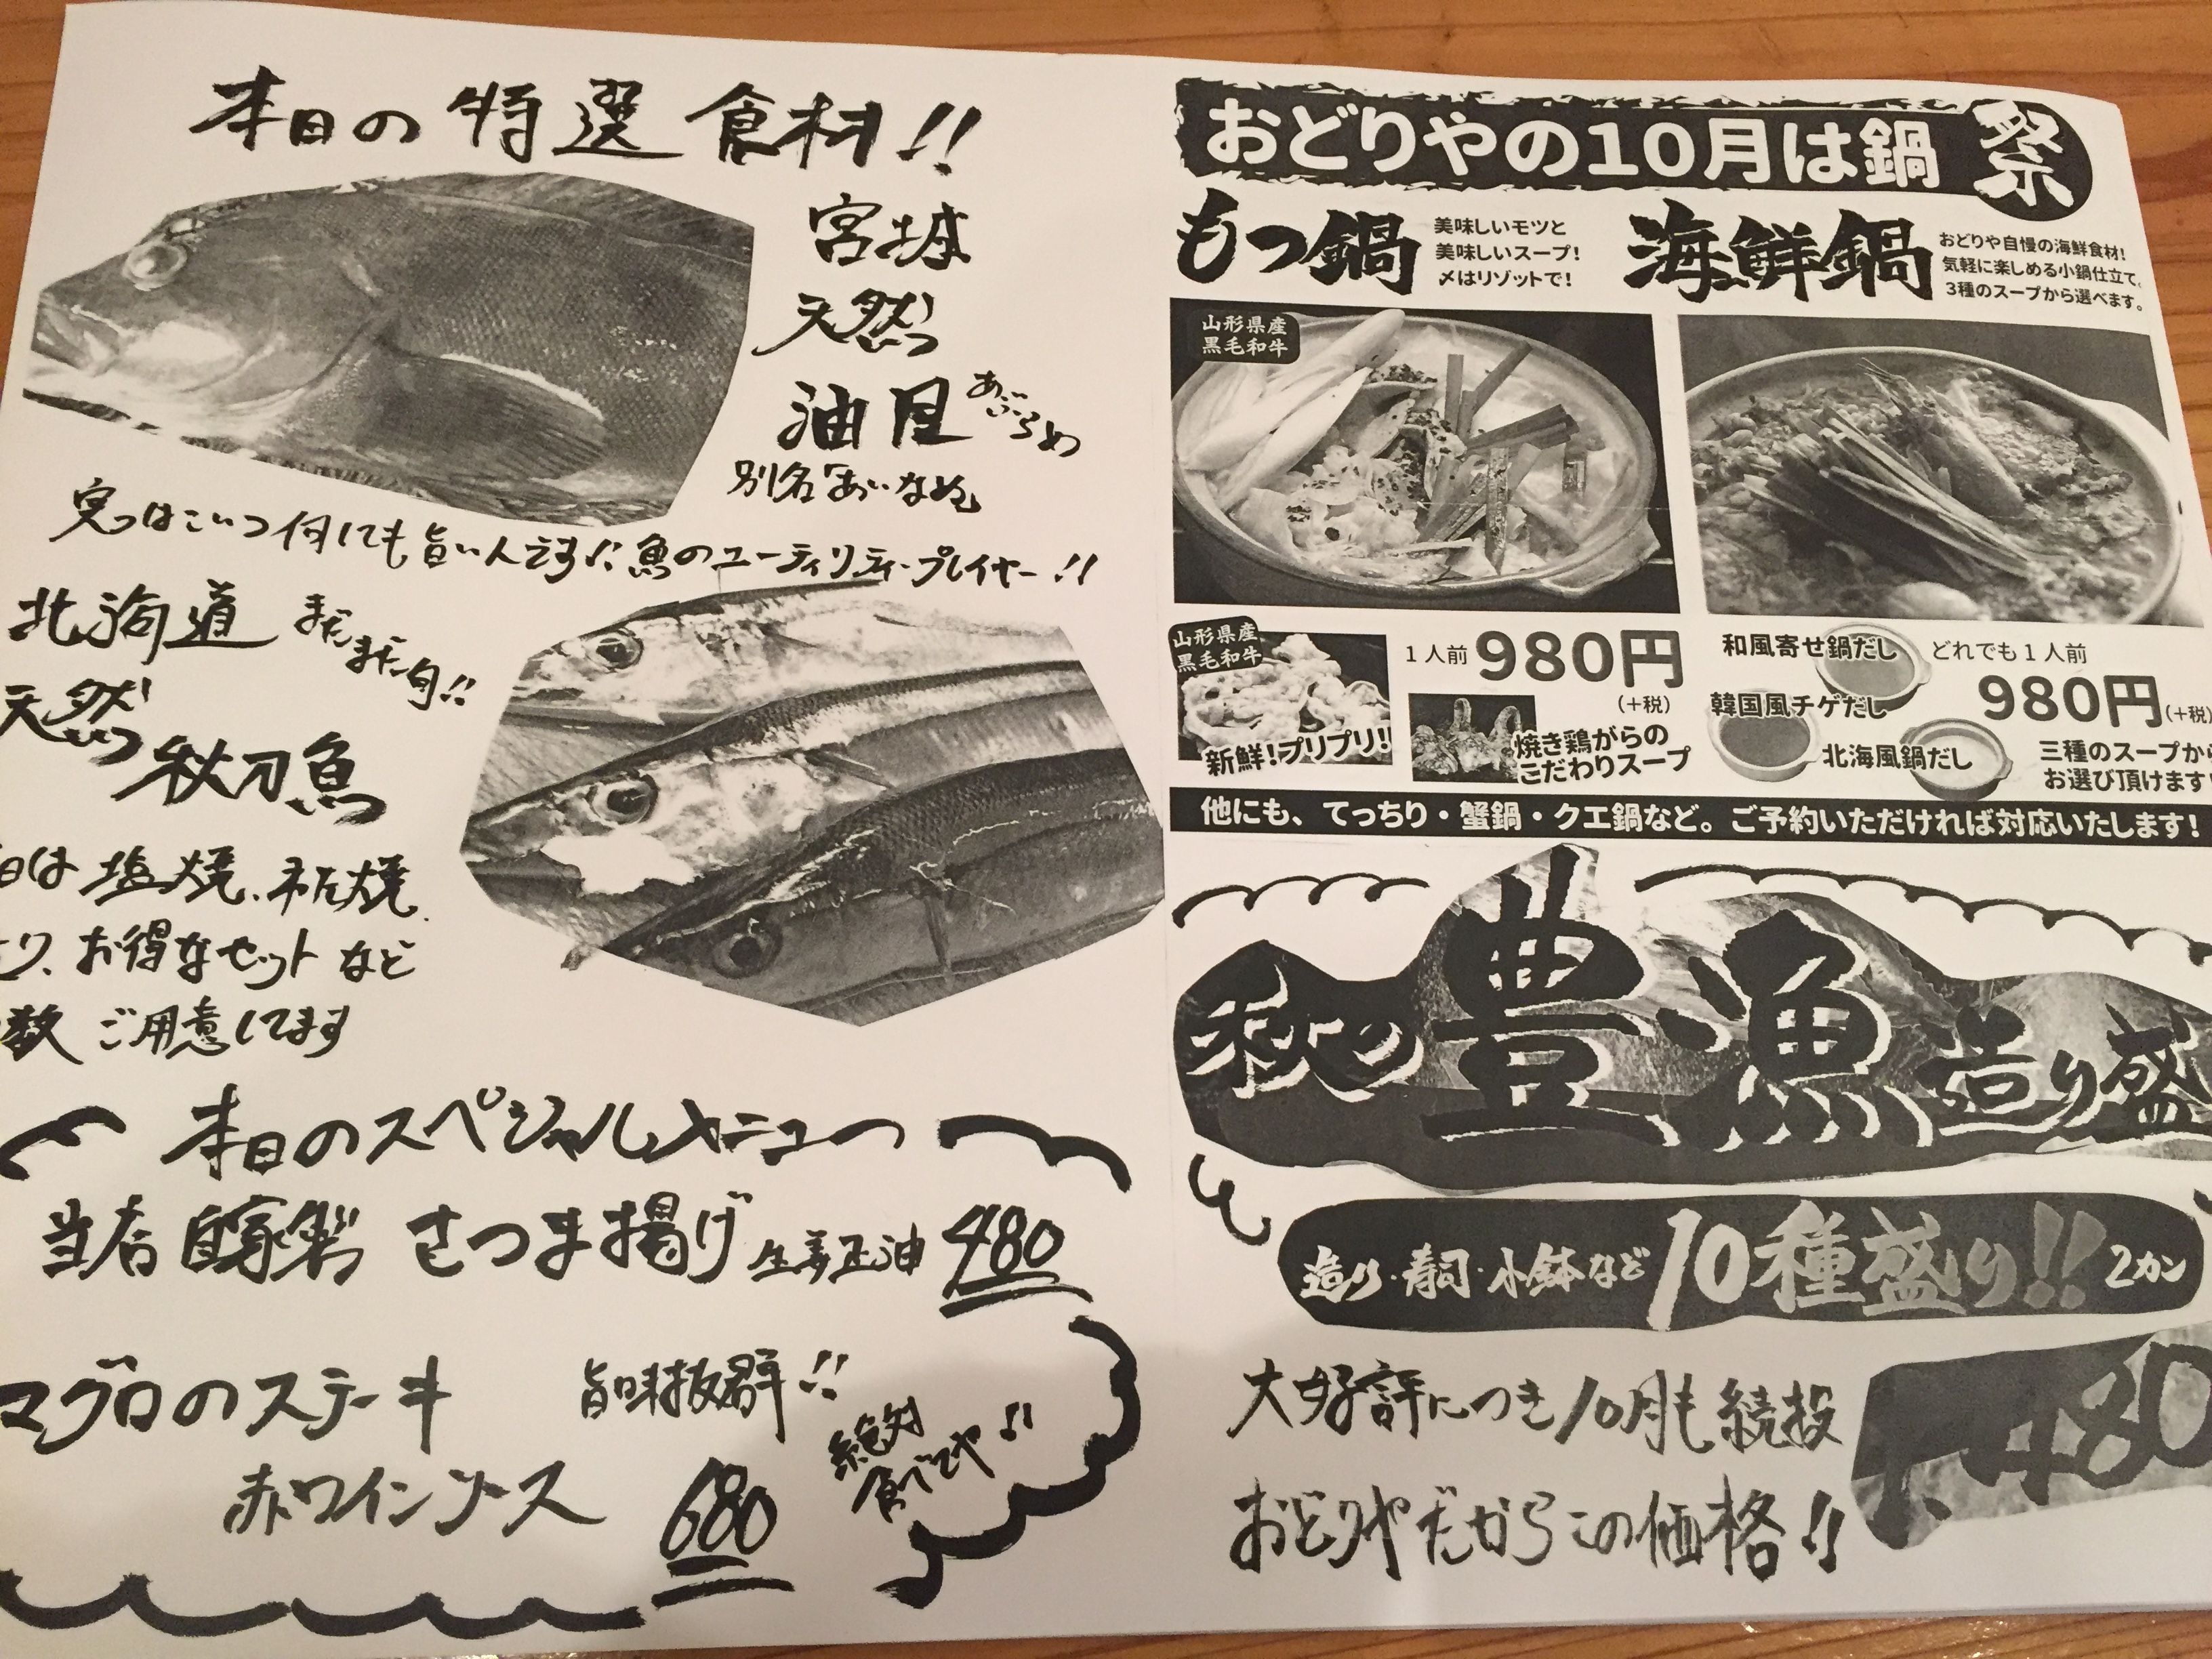 本日の特選食材!!
宮城
天然
油目 あぶらめ
別名「あいなめ」
実はこいつ何しても旨いんです!! 魚のユーティリティープレイヤー!!
北海道 まだまだ旬!!
天然
秋刀魚
日は塩焼、
り、お得なセットなど
数ご用意してます
本日のスペシャルメニュー
当店自家製 さつま揚げ 生姜正油 480
マグロのステーキ 旨味抜群!!
赤ワインソース 680
絶対
食べてや!!
おどりやの10月は鍋祭
もつ鍋
美味しいモツと
美味しいスープ!
〆はリゾットで!
海鮮鍋
おどりや自慢の海鮮食材!
気軽に楽しめる小鍋仕立て。
3種のスープから選べます。
山形県産
黒毛和牛
山形県産
黒毛和牛
新鮮!プリプリ!!
1人前980円
(+税)
焼き鶏がらの
こだわりスープ
和風寄せ鍋だし
韓国風チゲだし
北海風鍋だし
どれでも1人前
980円(+税)
三種のスープから
お選び頂けます!
他にも、てっちり・蟹鍋・クエ鍋など。ご予約いただければ対応いたします!
秋の豊漁造り盛
造り・寿司・小鉢など10種盛り!! 2カン
大好評につき10月も続投
1,480
おどりやだからこの価格!!